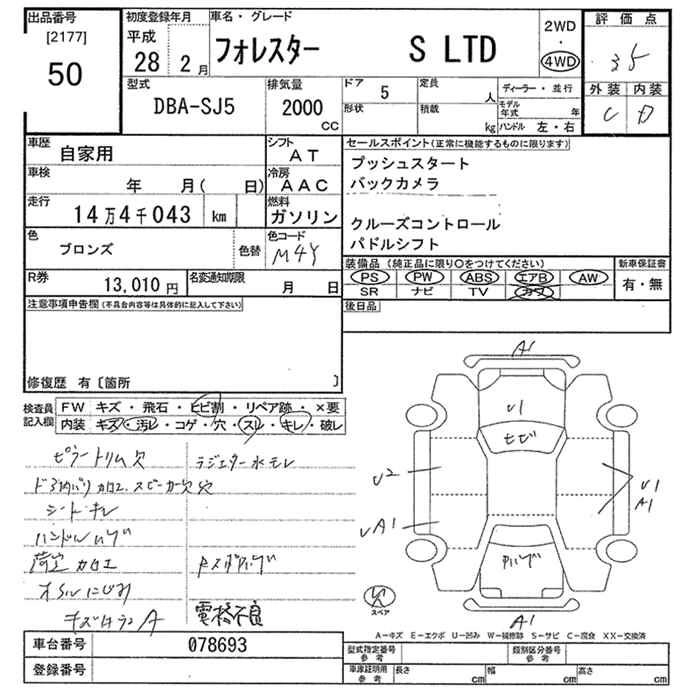 出品番号
[2177]
50
初度登録年月
平成
28 2月
車名・グレード
フォレスター S LTD
2WD
・
4WD
評価点
3.5
外装 内装
C D
型式
DBA-SJ5
排気量
2000
cc
ドア 5
形状
定員 人
積載 kg
ディーラー・並行
モデル年式 年
ハンドル 左・右
車歴
自家用
シフト
AT
車検
年 月( 日)
冷房
AAC
走行
14万4千043 km
燃料
ガソリン
色
ブロンズ
色替
色コード
M4Y
R券
13,010円
名変通知期限
月 日
セールスポイント(正常に機能するものに限ります)
プッシュスタート
バックカメラ
クルーズコントロール
パドルシフト
装備品(純正品に限り○をつけてください)
PS PW ABS エアB AW
SR ナビ TV カワ
新車保証書
有・無
後日品
注意事項申告欄(不具合内容等は具体的に記入して下さい)
修復歴 有〔箇所 〕
検査員記入欄
FW キズ・飛石・ヒビ割・リペア跡・×要
内装 キズ・汚レ・コゲ・穴・スレ・キレ・破レ
ピラートリム欠
ラジエター水モレ
ド3内バリ加工.スピーカー欠 穴
シートキレ
ハンドル
荷室加工
オイルにじみ
電格不良
A1
U1
ヒビ
U2
U1
A1
A1
A1
スペア
A-キズ E-エクボ U-凹み W-補修跡 S-サビ C-腐食 XX-交換済
車台番号
078693
登録番号
型式指定番号
参考
類別区分番号
参考
車庫証明用
参考
長さ cm
幅 cm
高さ cm